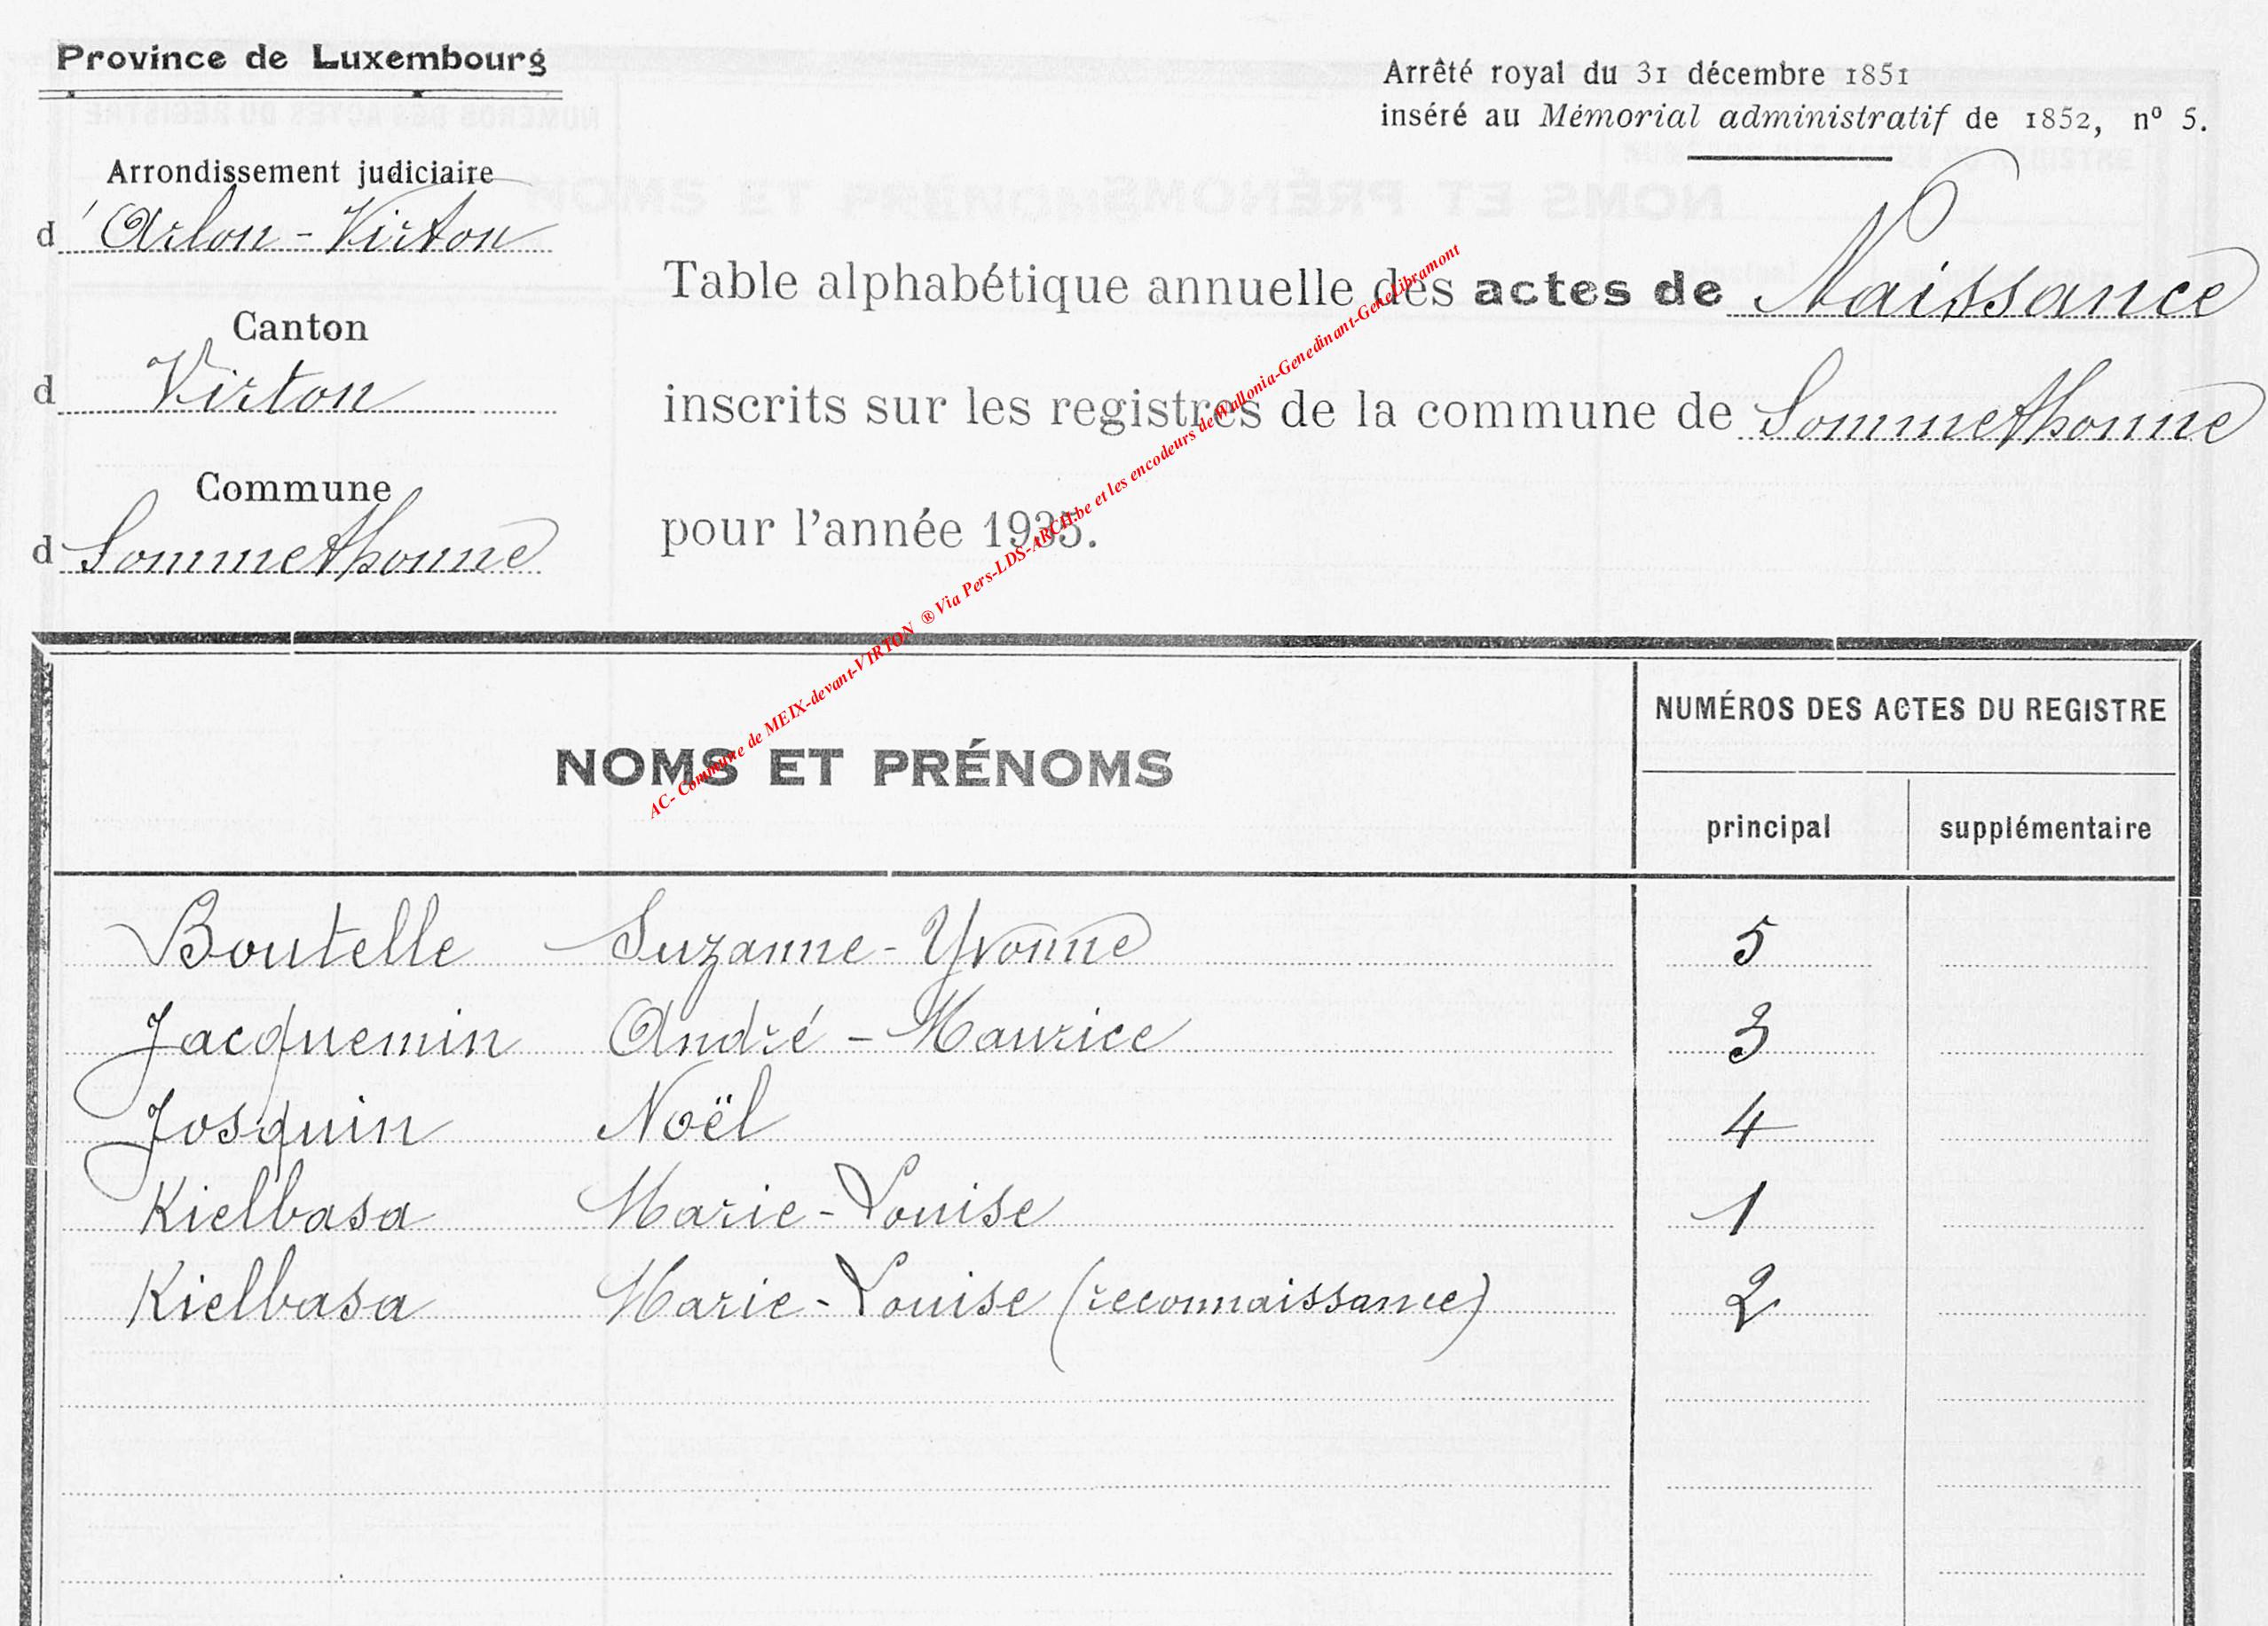 Province de Luxembourg
Arrêté royal du 31 décembre 1851
inséré au Mémorial administratif de 1852, nº 5.
Arrondissement judiciaire
d'Arlon-Virton
Canton
d Virton
Commune
d Sommethonne
Table alphabétique annuelle des actes de Naissance
inscrits sur les registres de la commune de Sommethonne
pour l'année 1935.
AC- Commune de MEIX-devant-VIRTON ® Via Pers-LDS-ARCH.be et les encodeurs deWallonia-Genedinant-GeneLibramont
NOMS ET PRÉNOMS
NUMÉROS DES ACTES DU REGISTRE
principal supplémentaire
Boutelle Suzanne-Yvonne 5
Jacquemin André-Maurice 3
Josquin Noël 4
Kielbasa Marie-Louise 1
Kielbasa Marie-Louise (reconnaissance) 2